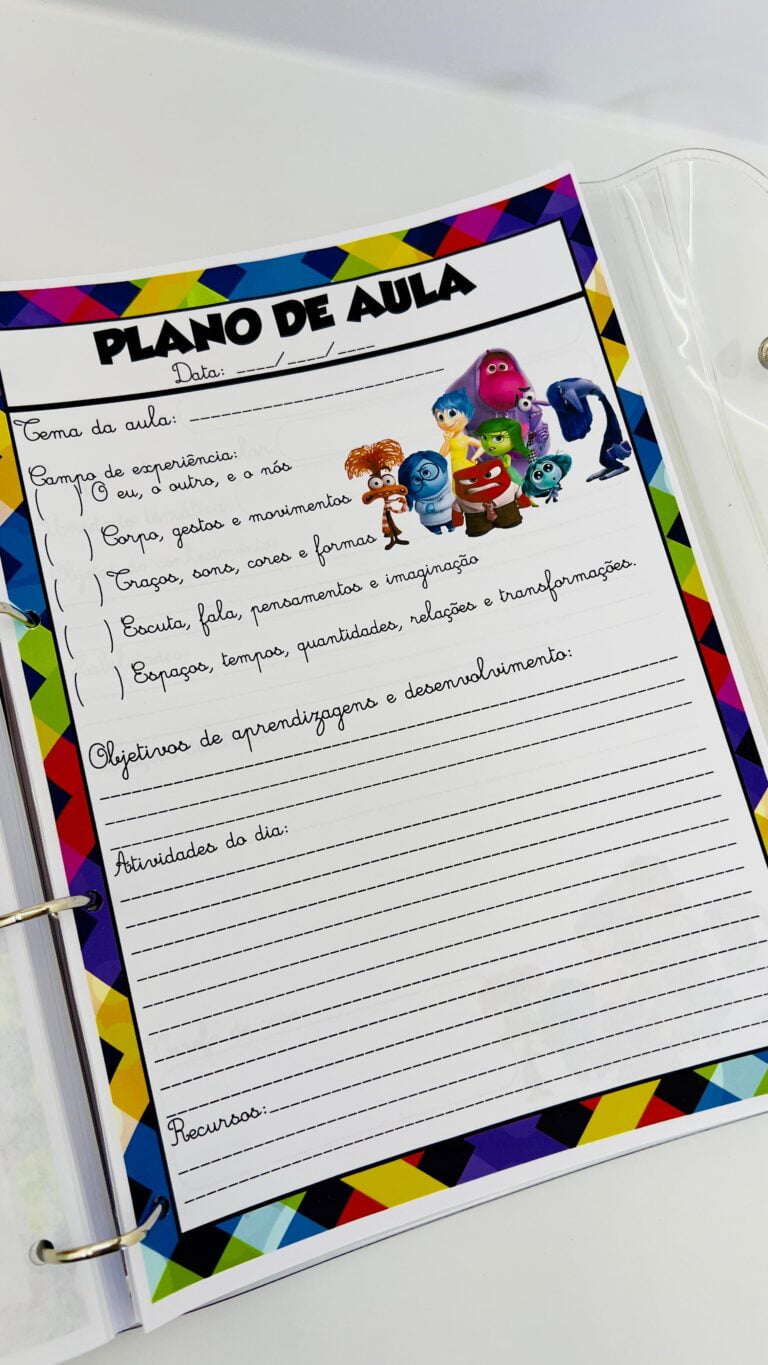 PLANO DE AULA
Data: ____/____/____
Tema da aula: ____________________
Campo de experiência:
( ) O eu, o outro, e o nós
( ) Corpo, gestos e movimentos
( ) Traços, sons, cores e formas
( ) Escuta, fala, pensamentos e imaginação
( ) Espaços, tempos, quantidades, relações e transformações.
Objetivos de aprendizagens e desenvolvimento:
Atividades do dia:
Recursos: